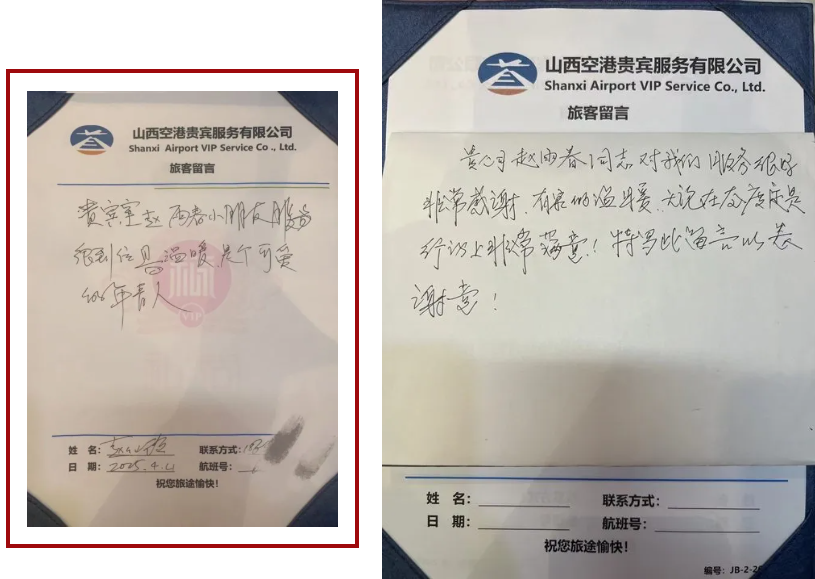 山西空港贵宾服务有限公司
Shanxi Airport VIP Service Co., Ltd.
旅客留言
贵宾室赵雨春小朋友服务
很到位 温暖 是个可爱
的年青人
姓 名:
联系方式:
日 期: 2025.4.11
航班号:
祝您旅途愉快!
山西空港贵宾服务有限公司
Shanxi Airport VIP Service Co., Ltd.
旅客留言
贵公司赵雨春同志对我们服务很好
非常感谢,有家的温暖,无论在态度还是
行动上非常满意!特写此留言以表
谢意!
姓 名:
联系方式:
日 期:
航班号:
祝您旅途愉快!
编号: JB-2-2